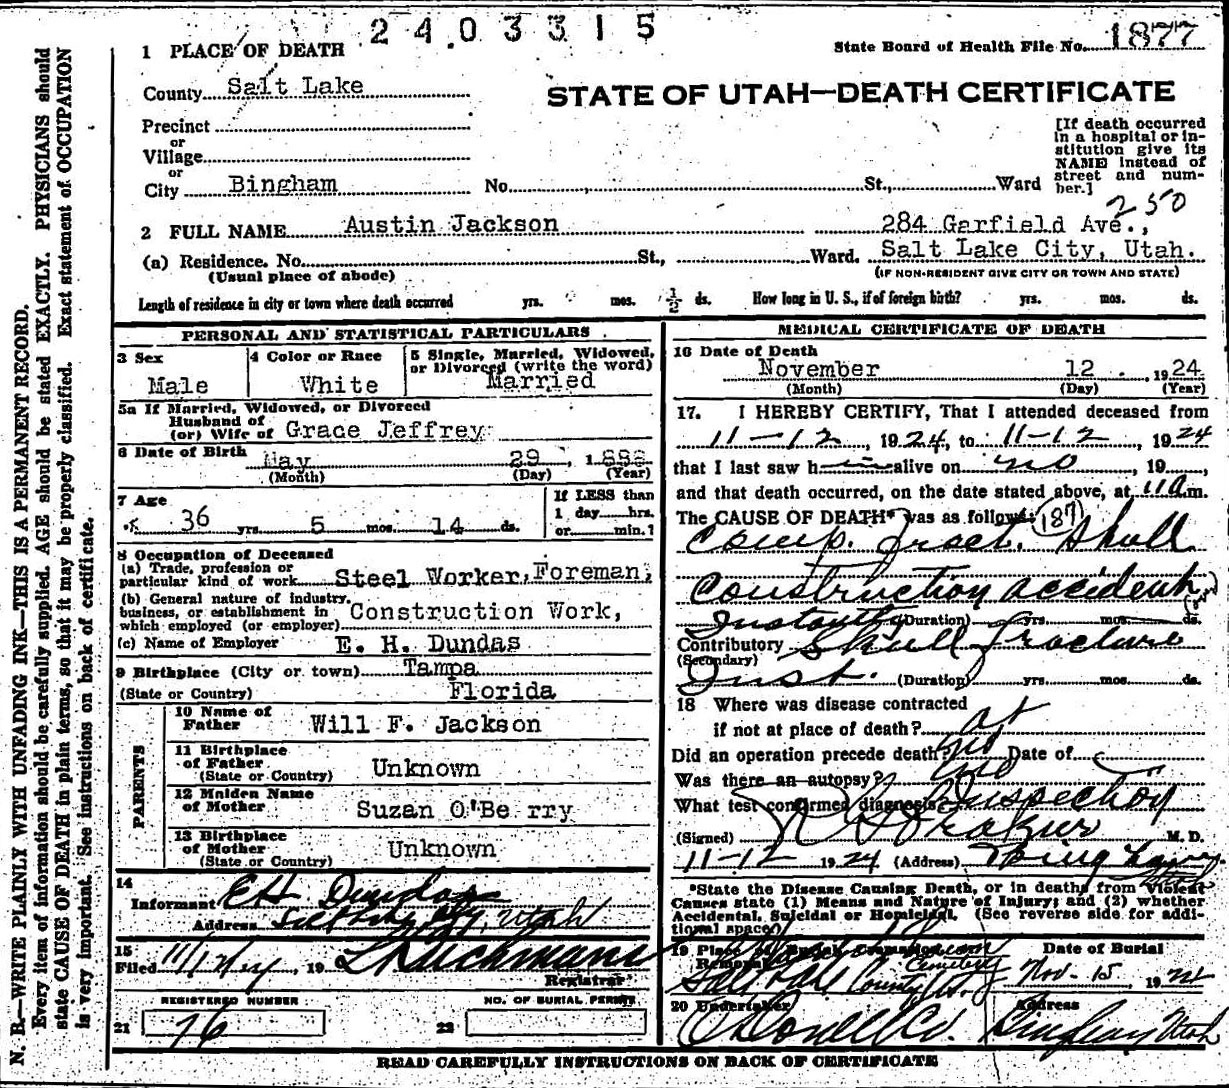 2403315
1 PLACE OF DEATH
State Board of Health File No. 1877
County Salt Lake
STATE OF UTAH—DEATH CERTIFICATE
Precinct
or
Village
or
City Bingham No. St., Ward
[If death occurred in a hospital or institution give its NAME instead of street and number.]
250
2 FULL NAME Austin Jackson 284 Garfield Ave.,
(a) Residence. No. St., Ward. Salt Lake City, Utah.
(Usual place of abode) (IF NON-RESIDENT GIVE CITY OR TOWN AND STATE)
Length of residence in city or town where death occurred yrs. mos. 1/2 ds. How long in U. S., if of foreign birth? yrs. mos. ds.
PERSONAL AND STATISTICAL PARTICULARS
3 Sex Male
4 Color or Race White
5 Single, Married, Widowed, or Divorced (write the word) Married
5a If Married, Widowed, or Divorced
Husband of
(or) Wife of Grace Jeffrey
6 Date of Birth May 29, 1888
(Month) (Day) (Year)
7 Age 36 yrs. 5 mos. 14 ds.
If LESS than
1 day hrs.
or min.?
8 Occupation of Deceased
(a) Trade, profession or
particular kind of work Steel Worker, Foreman,
(b) General nature of industry,
business, or establishment in
which employed (or employer) Construction Work,
(c) Name of Employer E. H. Dundas
9 Birthplace (City or town) Tampa
(State or Country) Florida
PARENTS
10 Name of
Father Will F. Jackson
11 Birthplace
of Father
(State or Country) Unknown
12 Maiden Name
of Mother Suzan O'Be rry
13 Birthplace
of Mother
(State or Country) Unknown
14
Informant EH Dundas
Address Salt Lake City, Utah
15
Filed 19
Registrar
REGISTERED NUMBER
21 76
NO. OF BURIAL PERMIT
22
MEDICAL CERTIFICATE OF DEATH
16 Date of Death
November 12, 1924
(Month) (Day) (Year)
17. I HEREBY CERTIFY, That I attended deceased from
11-12, 1924, to 11-12, 1924
that I last saw him alive on no, 19 ,
and that death occurred, on the date stated above, at 11 a m.
The CAUSE OF DEATH* was as follows: 187
Comp. fract. Skull
Construction accident
Instantly (Duration) yrs. mos. ds.
Contributory Skull fracture
(Secondary)
Inst. (Duration) yrs. mos. ds.
18 Where was disease contracted
if not at place of death? at
Did an operation precede death? no Date of
Was there an autopsy? no
What test confirmed diagnosis? Inspection
(Signed) Frazier M. D.
11-12 1924 (Address) Bingham Utah
*State the Disease Causing Death, or in deaths from Violent
Causes state (1) Means and Nature of Injury; and (2) whether
Accidental, Suicidal or Homicidal. (See reverse side for additional space)
19 Place of Burial, Cremation or Removal
Cemetery
Salt Lake County
Date of Burial
Nov. 15, 1924
20 Undertaker
O'Donnell Co.
Address
Bingham Utah
READ CAREFULLY INSTRUCTIONS ON BACK OF CERTIFICATE
N. B.—WRITE PLAINLY WITH UNFADING INK—THIS IS A PERMANENT RECORD.
Every item of information should be carefully supplied. AGE should be stated EXACTLY. PHYSICIANS should
state CAUSE OF DEATH in plain terms, so that it may be properly classified. Exact statement of OCCUPATION
is very important. See instructions on back of certificate.